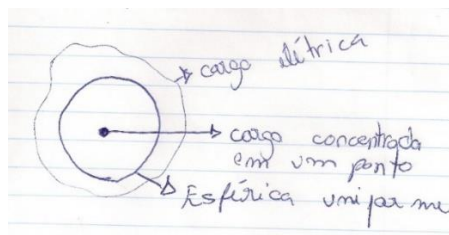 carga elétrica
carga concentrada
em um ponto
Esférica uniforme